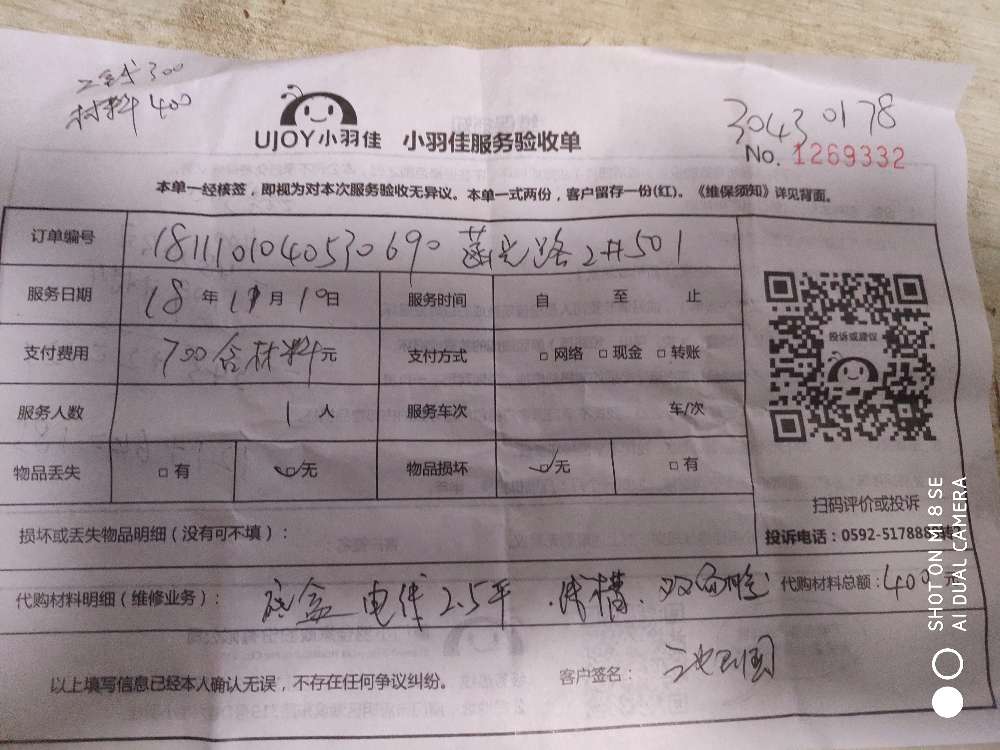 300
材料 400
30430178
UJOY小羽佳 小羽佳服务验收单
No. 1269332
本单一经核签，即视为对本次服务验收无异议。本单一式两份，客户留存一份(红)。《维保须知》详见背面。
订单编号 1811101040530690 路2#501
服务日期 18年11月10日 服务时间 自 至 止
支付费用 700含材料元 支付方式 □网络 □现金 □转账
投诉或建议
服务人数 1人 服务车次 车/次
物品丢失 □有 ☑无 物品损坏 ☑无 □有
扫码评价或投诉
损坏或丢失物品明细（没有可不填）：
投诉电话：0592-517888
代购材料明细（维修业务）： 底盒 电线2.5平 线槽 代购材料总额：400元
以上填写信息已经本人确认无误，不存在任何争议纠纷。 客户签名：
SHOT ON MI 8 SE
AI DUAL CAMERA